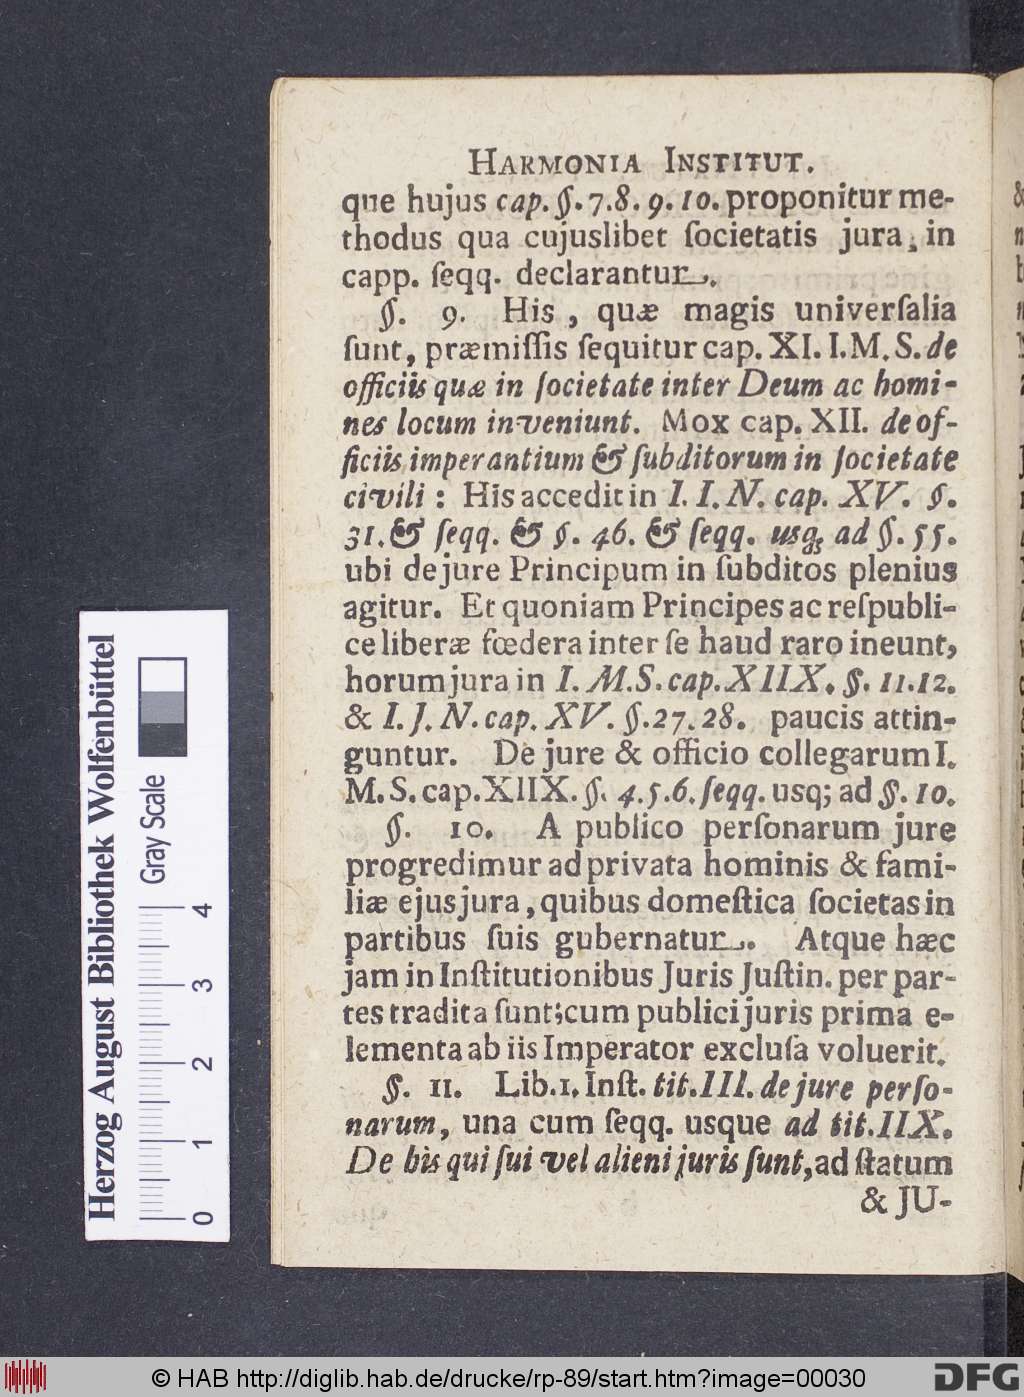 HARMONIA INSTITUT.
que hujus cap. §. 7. 8. 9. 10. proponitur me-
thodus qua cujuslibet ſocietatis jura, in
capp. ſeqq. declarantur.
§. 9. His, quæ magis univerſalia
ſunt, præmiſſis ſequitur cap. XI. I. M. S. de
officiis quæ in ſocietate inter Deum ac homi-
nes locum inveniunt. Mox cap. XII. de of-
ficiis imperantium & ſubditorum in ſocietate
civili : His accedit in I. I. N. cap. XV. §.
31. & ſeqq. & §. 46. & ſeqq. usq; ad §. 55.
ubi de jure Principum in ſubditos plenius
agitur. Et quoniam Principes ac reſpubli-
ce liberæ fœdera inter ſe haud raro ineunt,
horum jura in I. M. S. cap. XIIX. §. 11. 12.
& I. J. N. cap. XV. §. 27. 28. paucis attin-
guntur. De jure & officio collegarum I.
M. S. cap. XIIX. §. 4. 5. 6. ſeqq. usq; ad §. 10.
§. 10. A publico perſonarum jure
progredimur ad privata hominis & fami-
liæ ejus jura, quibus domeſtica ſocietas in
partibus ſuis gubernatur. Atque hæc
jam in Inſtitutionibus Juris Juſtin. per par-
tes tradita ſunt; cum publici juris prima e-
lementa ab iis Imperator excluſa voluerit.
§. 11. Lib. 1. Inſt. tit. III. de jure perſo-
narum, una cum ſeqq. usque ad tit. IIX.
De his qui ſui vel alieni juris ſunt, ad ſtatum
& JU-
Herzog August Bibliothek Wolfenbüttel
Gray Scale
0 1 2 3 4
© HAB http://diglib.hab.de/drucke/rp-89/start.htm?image=00030
DFG